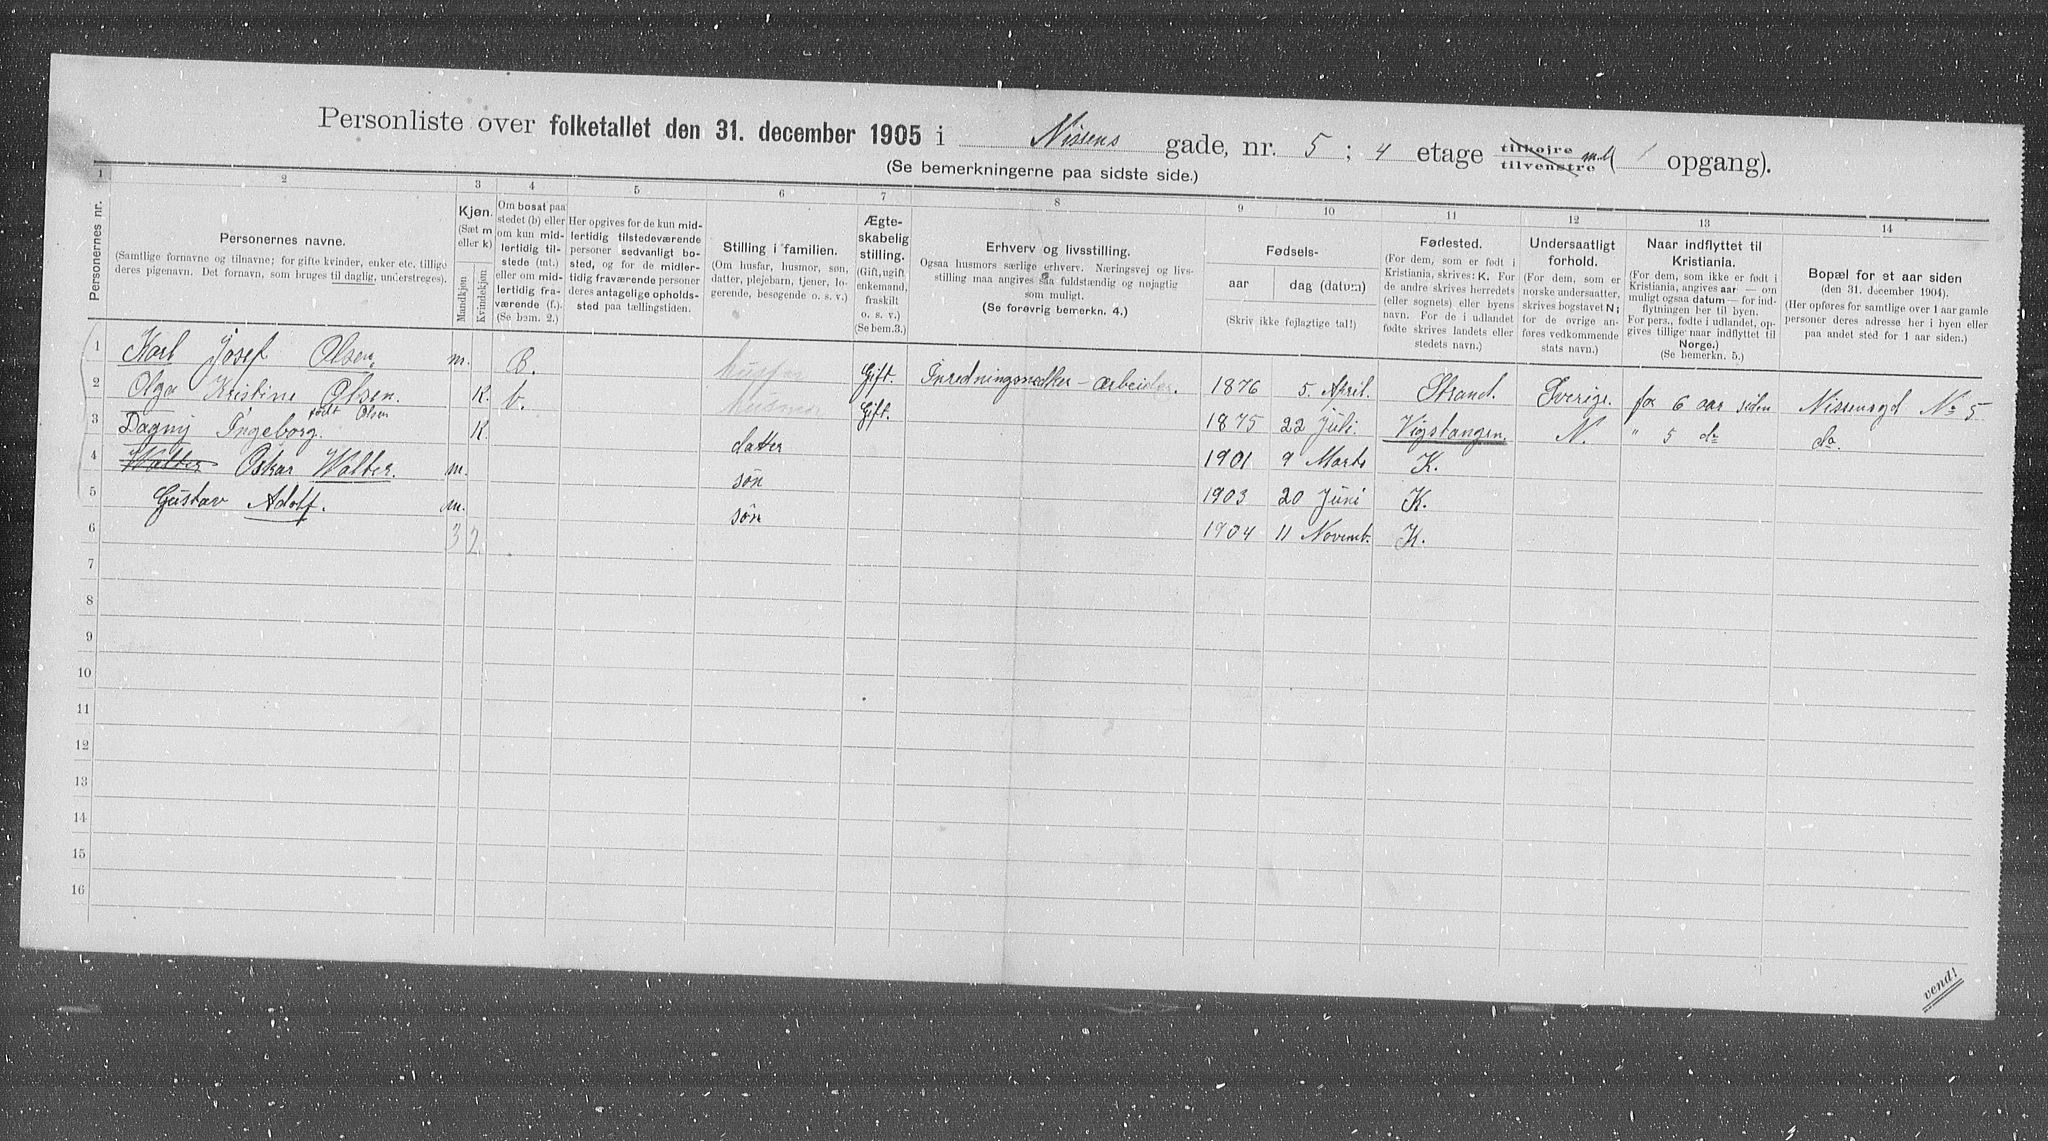 Personliste over folketallet den 31. december 1905 i Nissens gade, nr. 5 ; 4 etage tilhøjre tilvenstre 1 opgang).
(Se bemerkningerne paa sidste side.)
1 2 3 4 5 6 7 8 9 10 11 12 13 14
Personernes nr.
Personernes navne.
(Samtlige fornavne og tilnavne; for gifte kvinder, enker etc. tillige
deres pigenavn. Det fornavn, som bruges til daglig, understreges).
Kjøn.
(Sæt m
eller k)
Mandkjøn
Kvindekjøn
Om bosat paa
stedet (b) eller
om kun mid-
lertidig til-
stede (mt.)
eller om mid-
lertidig fra-
værende (f.).
(Se bem. 2.)
Her opgives for de kun mid-
lertidig tilstedeværende
personer sedvanligt bo-
sted, og for de midler-
tidig fraværende personer
deres antagelige opholds-
sted paa tællingstiden.
Stilling i familien.
(Om husfar, husmor, søn,
datter, plejebarn, tjener, lo-
gerende, besøgende o. s. v.)
Ægte-
skabelig
stilling.
(Gift, ugift
enkemand,
fraskilt
o. s. v.)
(Se bem.3.)
Erhverv og livsstilling.
Ogsaa husmors særlige erhverv. Næringsvej og livs-
stilling maa angives saa fuldstændig og nøjagtig
som muligt.
(Se forøvrig bemerkn. 4.)
Fødsels-
aar dag (datum)
(Skriv ikke fejlagtige tal!)
Fødested.
(For dem, som er født i
Kristiania, skrives: K. For
de andre skrives herredets
(eller sognets) eller byens
navn. For de i udlandet
fødte skrives landets eller
stedets navn.)
Undersaatligt
forhold.
(For dem, som er
norske undersaatter,
skrives bogstavet N;
for de øvrige an-
føres vedkommende
stats navn.)
Naar indflyttet til
Kristiania.
(For dem, som ikke er født i
Kristiania, angives aar — om
muligt ogsaa datum — for ind-
flytningen her til byen.
For pers., fødte i udlandet, op-
gives tillige naar indflyttet til
Norge.)
(Se bemerkn. 5.)
Bopæl for et aar siden
(den 31. december 1904).
(Her opføres for samtlige over 1 aar gamle
personer deres adresse her i byen eller
paa andet sted for 1 aar siden.)
1 Karl Josef Olsen. m. B. husfar Gift. Inredningsnedker-arbeider. 1876 5. April. Strand. Sverige. for 6 aar siden Nissensgd No 5
2 Olga Kristine Olsen. K. b. husmor Gift. 1875 22 Juli. Vigstangen. N. " 5 do do.
født Olsen
3 Dagny Ingeborg. K. datter 1901 9 Marts K.
4 Walter Oskar Walter. m. søn 1903 20 Juni K.
5 Gustav Adolf. m. søn 1904 11 Novemb. K.
6 3 2
7
8
9
10
11
12
13
14
15
16
vend!